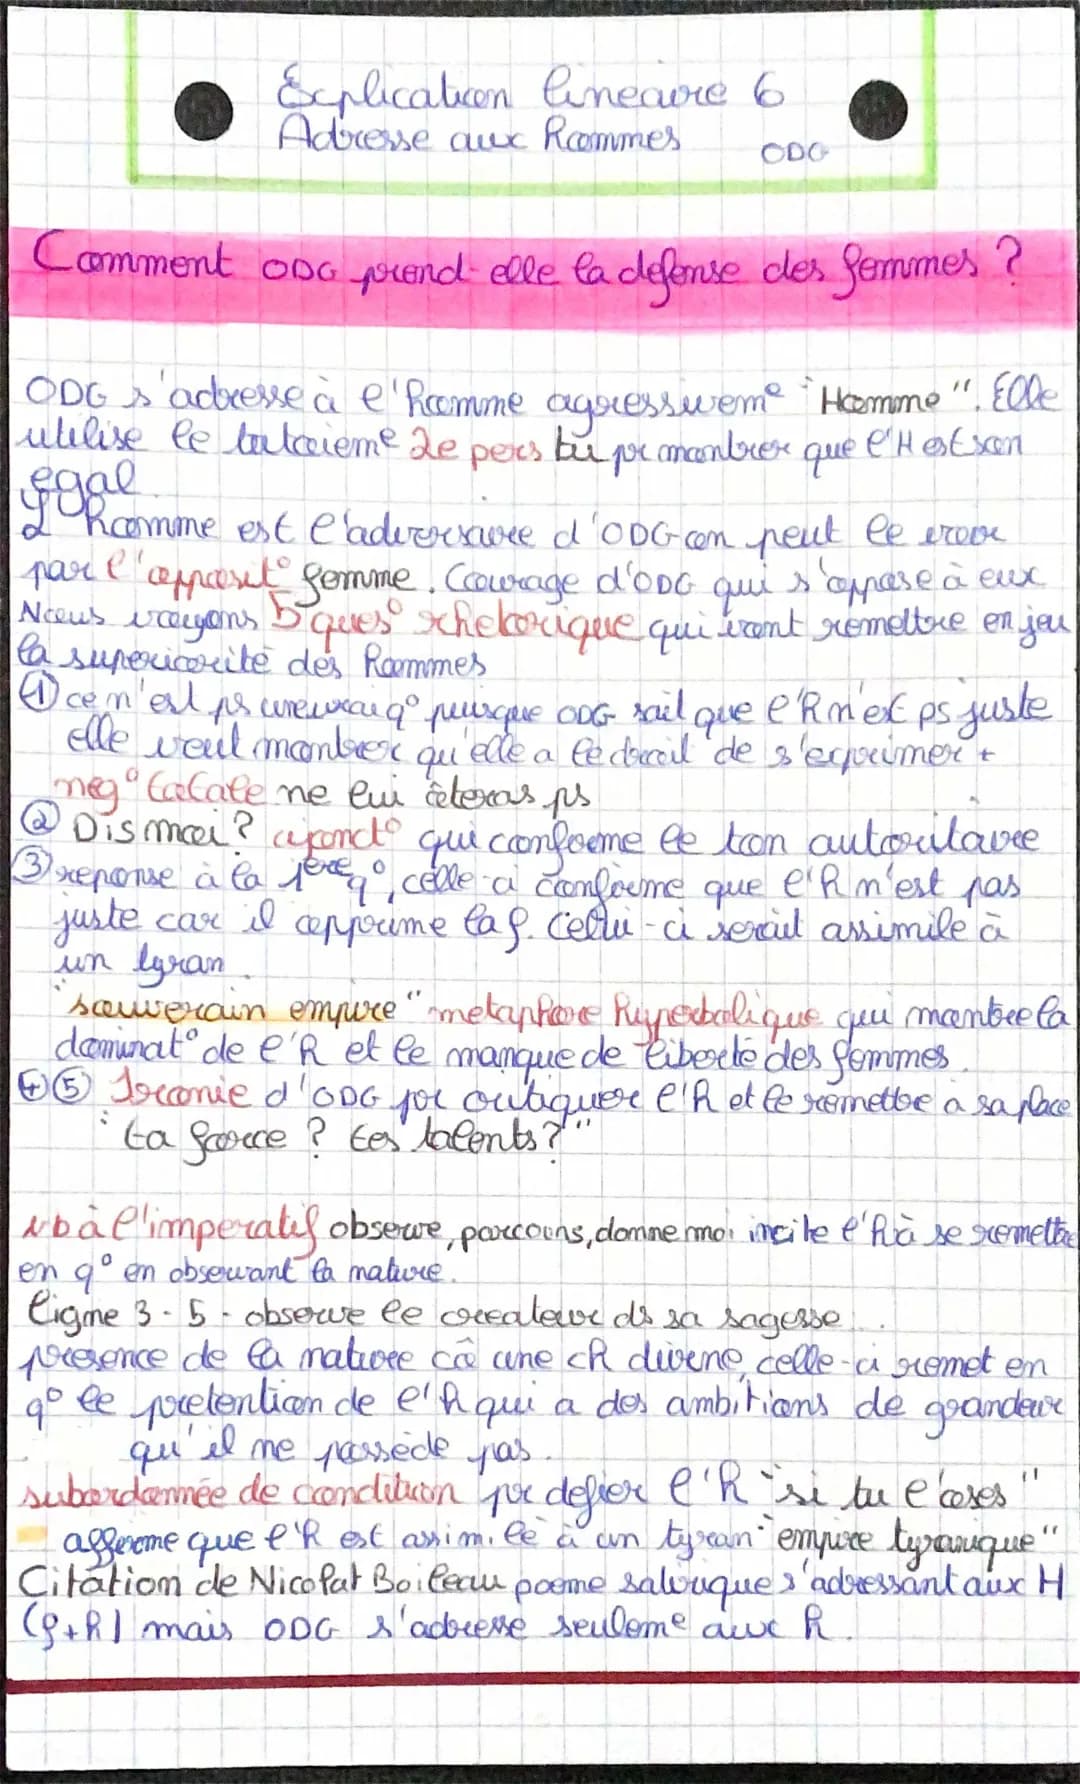 Explication lineaire 6
Adresse aux hommes ODG
Comment ODG prend-elle la defense des femmes ?
ODG s'adresse à l'homme agressivemᵉ "Homme". Elle
utilise le tutoiemᵉ 2e pers tu pr montrer que l'H est son
egal
L'homme est l'adversaire d'ODG on peut le voir
par l'opposit° femme. Courage d'ODG qui s'oppose à eux
Nous voyons 5 ques° rhetorique qui vont remettre en jeu
la superiorité des hommes
① ce n'est ps une vrai q° puisque ODG sait que l'h n'est ps juste
elle veut montrer qu'elle a le droit de s'exprimer +
neg° totale ne lui ôteras ps
② Dis moi? injonct° qui confirme le ton autoritaire
③ reponse à la 1ère q°, celle-ci confirme que l'h n'est pas
juste car il opprime la f. Celui-ci serait assimile à
un tyran.
"souverain empire" metaphore hyperbolique qui montre la
dominat° de l'h et le manque de liberté des femmes.
④⑤ Ironie d'ODG pr critiquer l'h et le remettre a sa place
: "ta force ? tes talents?"
vb à l'imperatif observe, parcours, donne moi incite l'h à se remettre
en q° en observant la nature.
ligne 3-5 - observe le createur ds sa sagesse...
presence de la nature cô une ch divine, celle-ci remet en
q° le pretention de l'h qui a des ambitions de grandeur
qu'il ne possède pas.
subordonnée de condition pr defier l'h "si tu l'oses"
afferme que l'h est assimilé à un tyran "empire tyranique"
Citation de Nicolat Boileau poeme satirique s'adressant aux H
(f+h) mais ODG s'adresse seulemᵉ aux h.